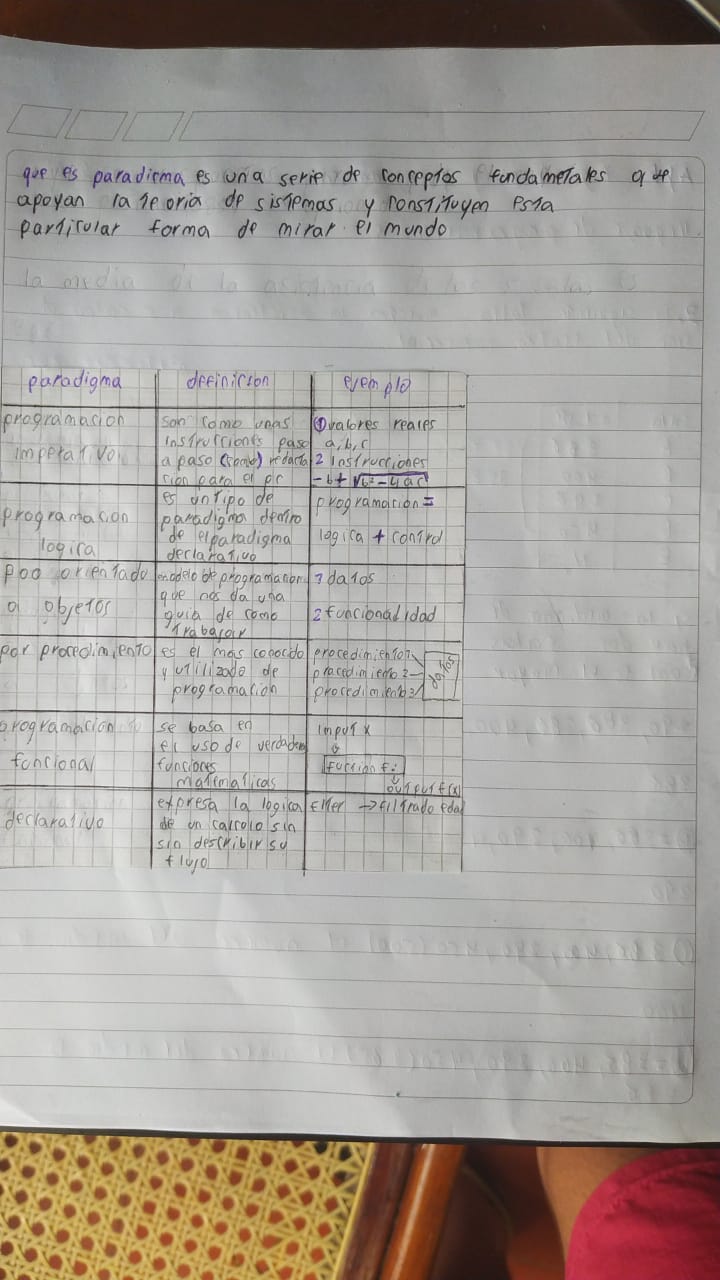 que es paradicma es una serie de conceptos fundametales que
apoyan la teoria de sistemas y constituyen esta
particular forma de mirar el mundo
paradigma
definicion
evemplo
programacion
imperativo
son como unas
instrucciones paso
a paso (como) redacta
cion para el pc
1 valores reales
a, b, c
2 instrucciones
-b+√b²-4ac
programacion
logica
es un tipo de
paradigma dentro
de el paradigma
declarativo
programacion =
logica + control
poo orientado
a objetos
modelo de programacion
que nos da una
guia de como
trabajar
1 datos
2 funcionalidad
por procedimiento
es el mas conocido
y utilizado de
programacion
procedimiento 1
procedimiento 2
procedimiento 3
datos
programacion
funcional
se basa en
el uso de verdaderas
funciones
matematicas
input x
function f:
output f(x)
declarativo
expresa la logica
de un calcolo sin
sin describir su
flujo
filter → filtrado edad